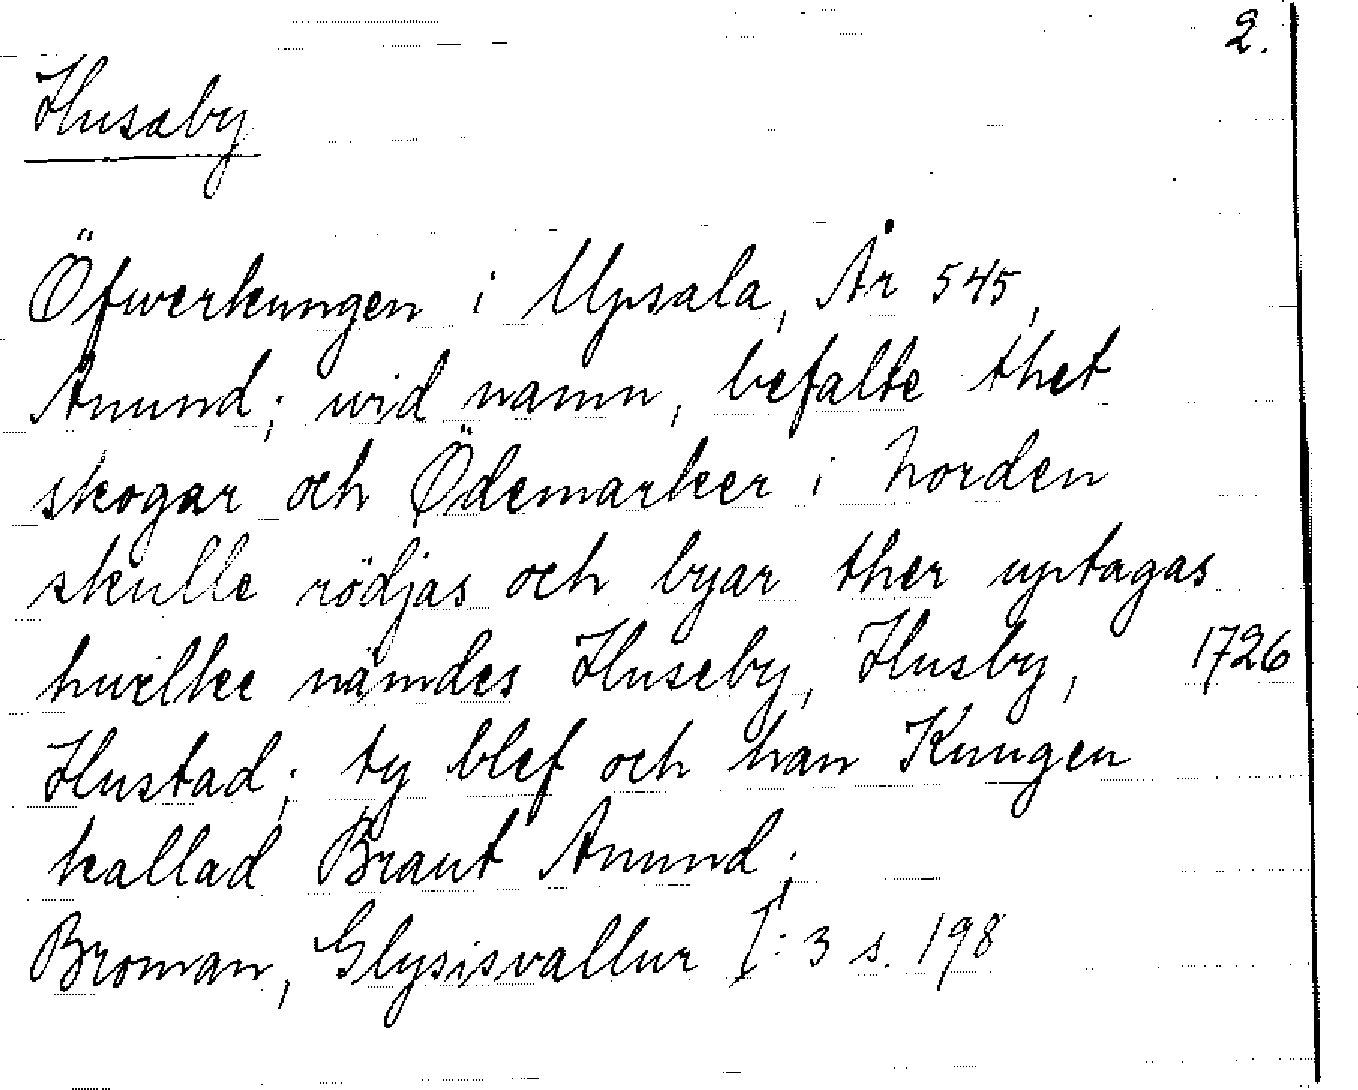 2.
Husaby
Öfwerkungen i Upsala, År 545,
Anund; wid namn, befalte thet
skogar och Ödemarker i Norden
skulle rödjas och byar ther uptagas
hwilke nämdes Huseby, Husby, 1726
Hustad; ty blef och han Kungen
kallad Braut Anund;
Broman, Glysisvallur I:3 s. 198